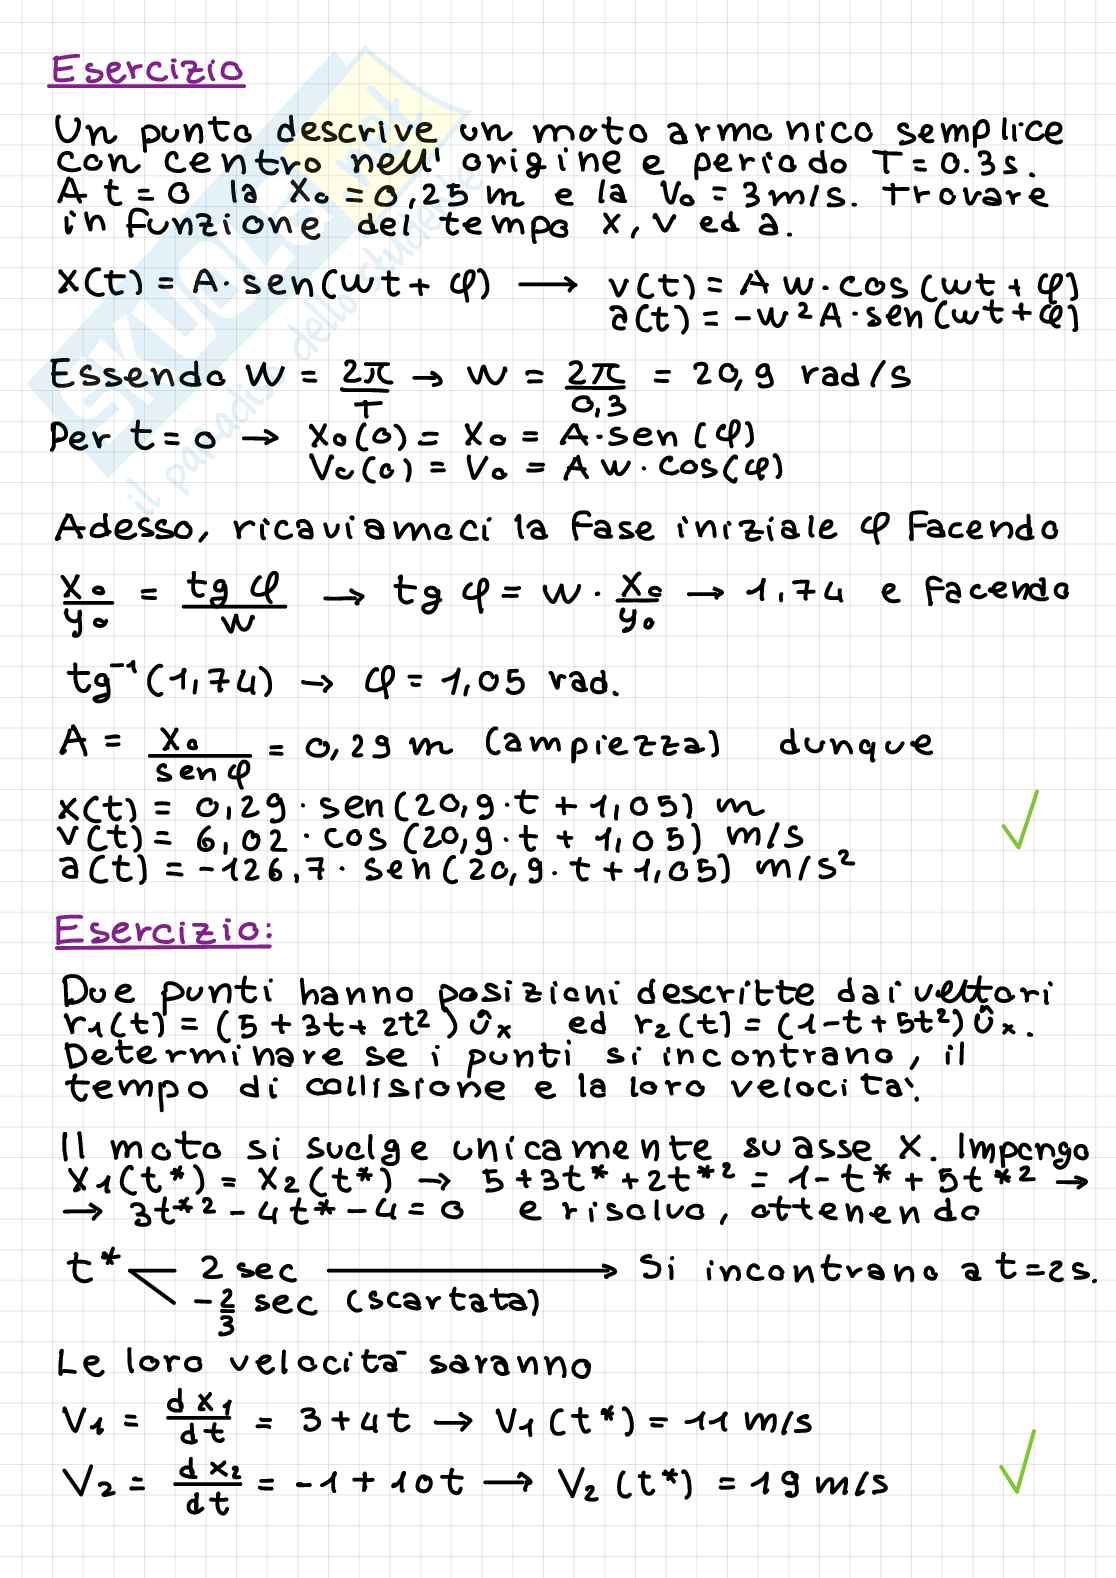 Esercizio
Un punto descrive un moto armonico semplice
con centro nell' origine e periodo T = 0.3 s.
A t = 0 la x₀ = 0,25 m e la v₀ = 3 m/s. trovare
in funzione del tempo x, v ed a.
x(t) = A · sen(wt + φ) → v(t) = A w · cos(wt + φ)
a(t) = -w²A · sen(wt + φ)
Essendo w = 2π/T → w = 2π/0,3 = 20,9 rad/s
Per t = 0 → x₀(0) = x₀ = A · sen(φ)
v₀(0) = v₀ = A w · cos(φ)
Adesso, ricaviamoci la fase iniziale φ facendo
x₀/y₀ = tg φ/w → tg φ = w · x₀/y₀ → 1,74 e facendo
tg⁻¹(1,74) → φ = 1,05 rad.
A = x₀/sen φ = 0,29 m (ampiezza) dunque
x(t) = 0,29 · sen(20,9 · t + 1,05) m
v(t) = 6,02 · cos(20,9 · t + 1,05) m/s
a(t) = -126,7 · sen(20,9 · t + 1,05) m/s²
Esercizio:
Due punti hanno posizioni descritte dai vettori
r₁(t) = (5 + 3t + 2t²) ûₓ ed r₂(t) = (1 - t + 5t²) ûₓ.
Determinare se i punti si incontrano, il
tempo di collisione e la loro velocità.
Il moto si svolge unicamente su asse x. Impongo
x₁(t*) = x₂(t*) → 5 + 3t* + 2t*² = 1 - t* + 5t*² →
→ 3t*² - 4t* - 4 = 0 e risolvo, ottenendo
t* 2 sec → Si incontrano a t = 2s.
-2/3 sec (scartata)
Le loro velocità saranno
V₁ = dx₁/dt = 3 + 4t → V₁(t*) = 11 m/s
V₂ = dx₂/dt = -1 + 10t → V₂(t*) = 19 m/s
SKUOLA.net